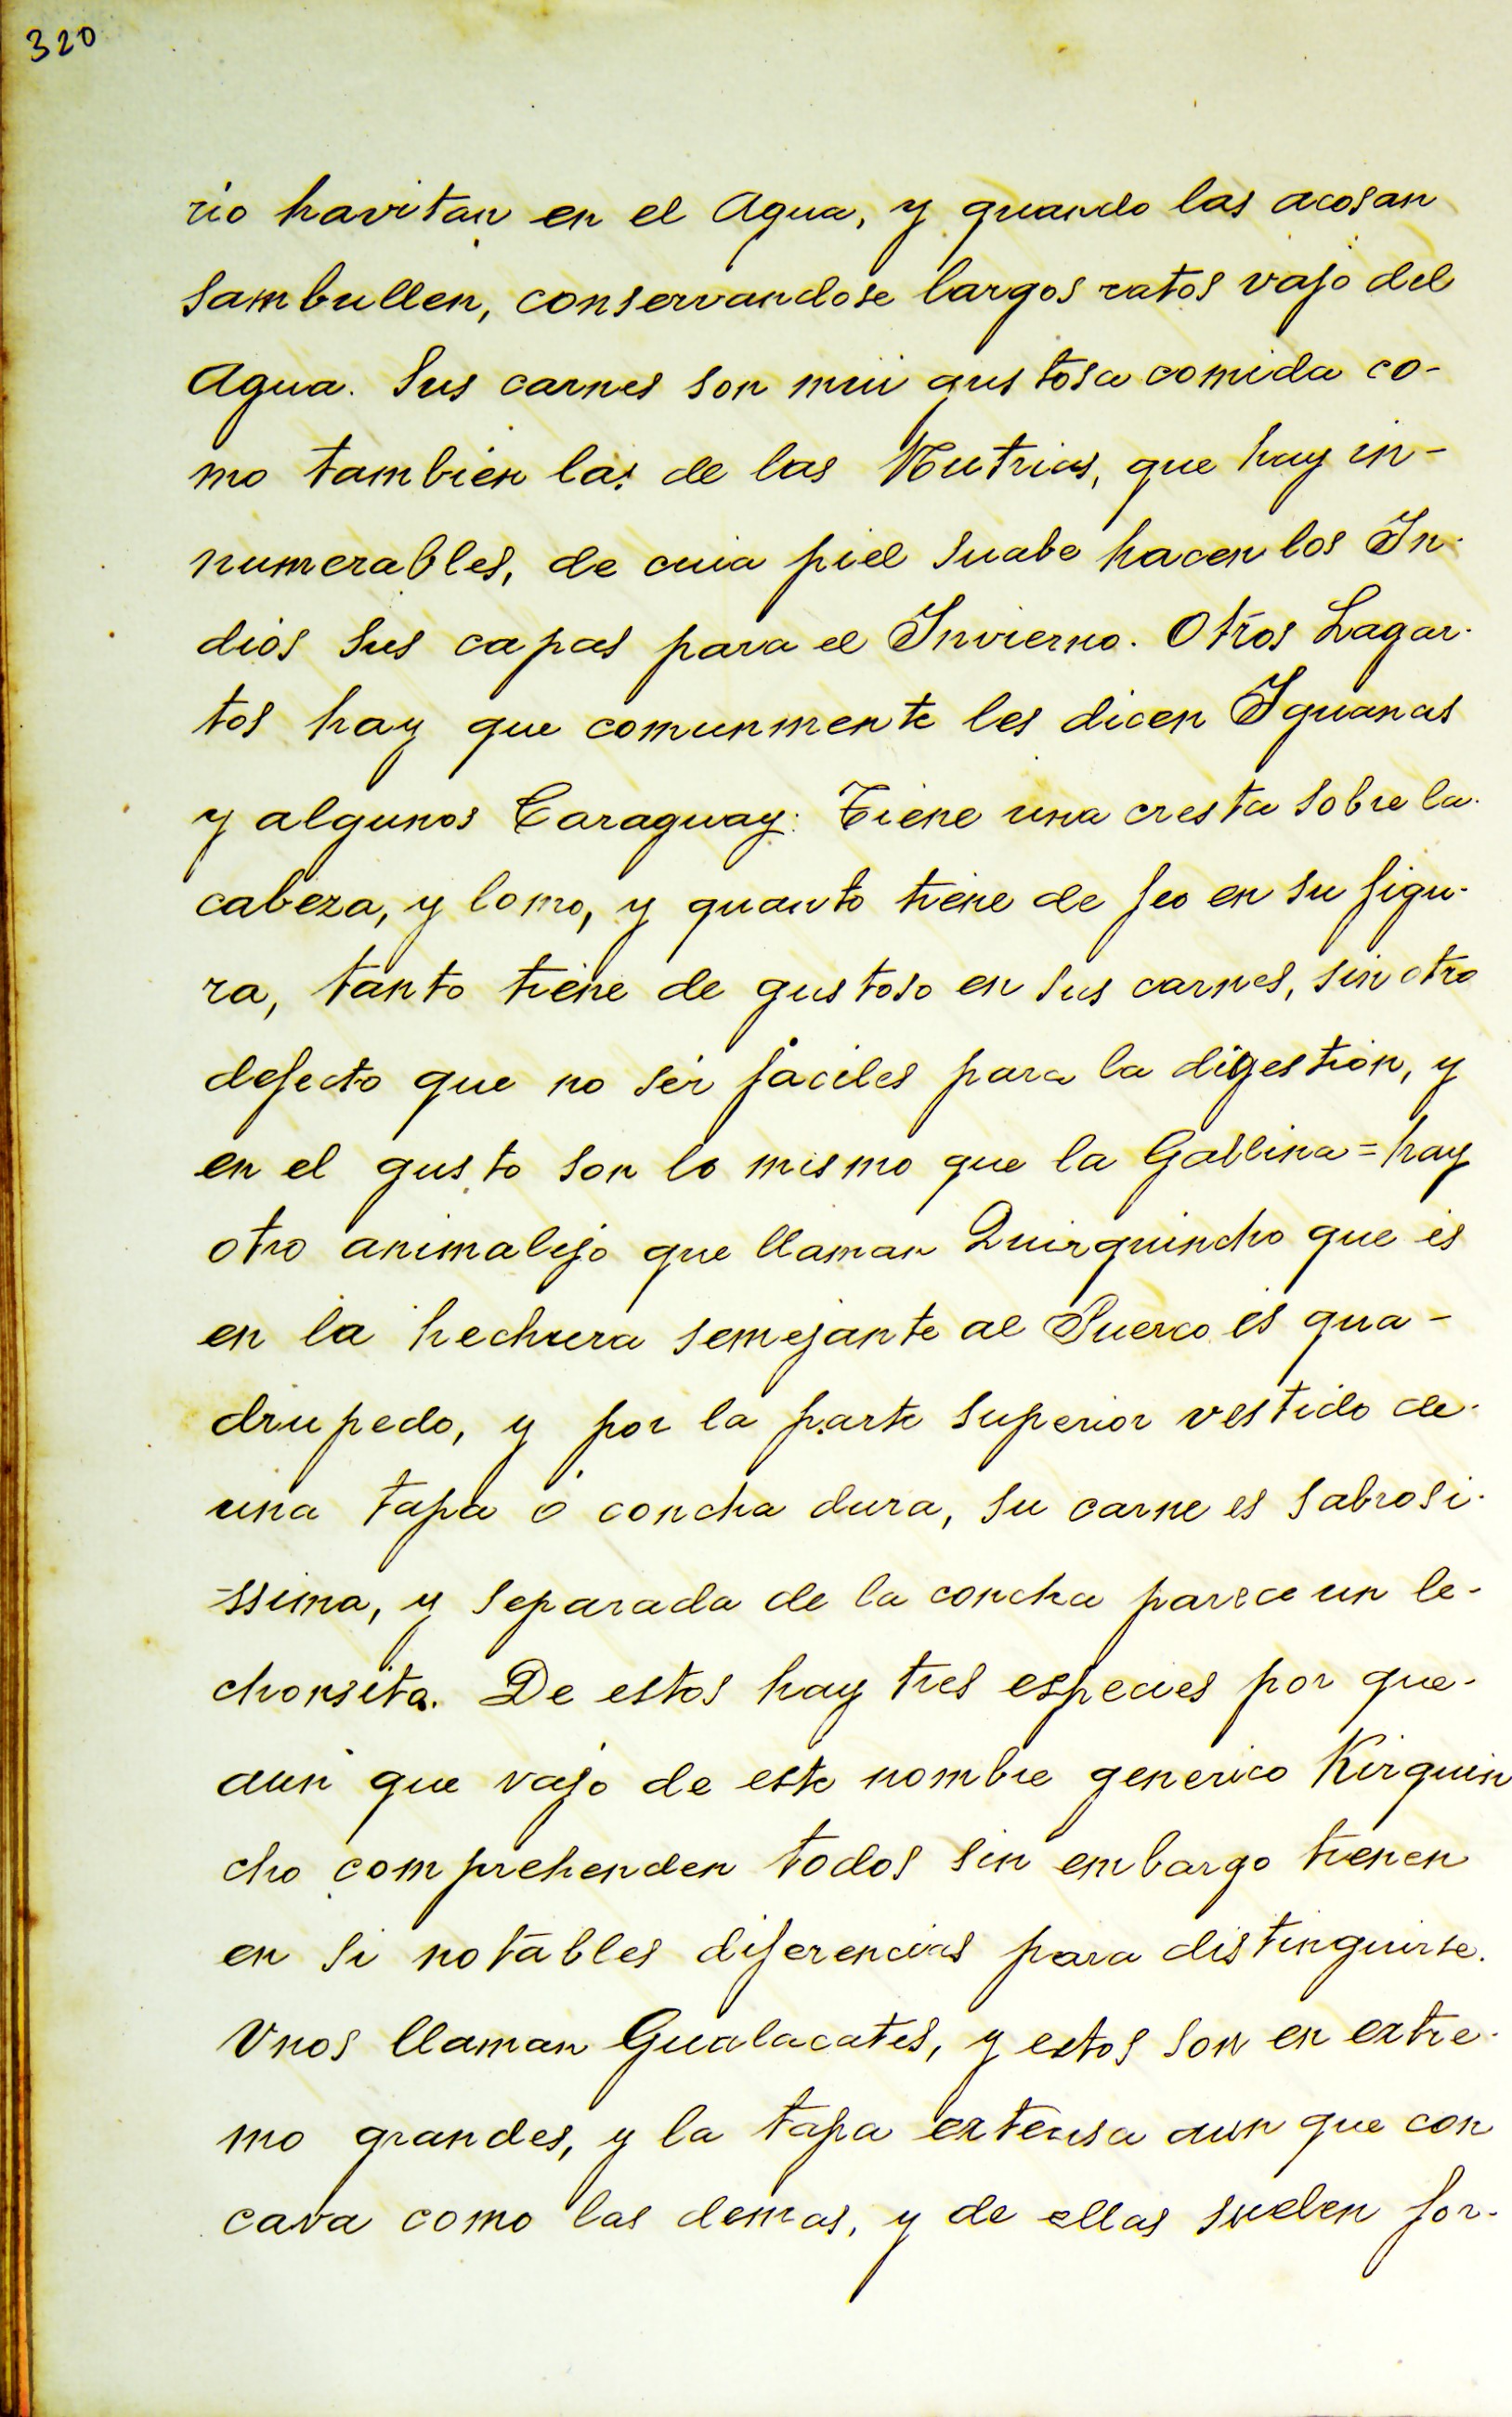 320
rio havitan en el Agua, y quando las acosan
sambullen, conservandose largos ratos vajo del
Agua. Sus carnes son mui gustosa comida co-
mo tambien las de las Nutrias, que hay in-
numerables, de cuia piel suabe hacen los In-
dios sus capas para el Invierno. Otros Lagar-
tos hay que comunmente les dicen Iguanas
y algunos Caraguay: Tiene una cresta sobre la
cabeza, y lomo, y quanto tiene de feo en su figu-
ra, tanto tiene de gustoso en sus carnes, sin otro
defecto que no ser fáciles para la digestion, y
en el gusto son lo mismo que la Gallina = hay
otro animalejo que llaman Quirquincho que es
en la hechura semejante al Puerco es qua-
drupedo, y por la parte superior vestido de
una tapa ó concha dura, su carne es sabrosi-
-ssima, y separada de la concha parece un le-
chonsito. De estos hay tres especies por que
aun que vajo de este nombre generico Kirquin
cho comprehenden todos sin embargo tienen
en si notables diferencias para distinguirse.
Vnos llaman Gualacates, y estos son en extre-
mo grandes, y la tapa extensa aun que con
cava como las demas, y de ellas suelen for-